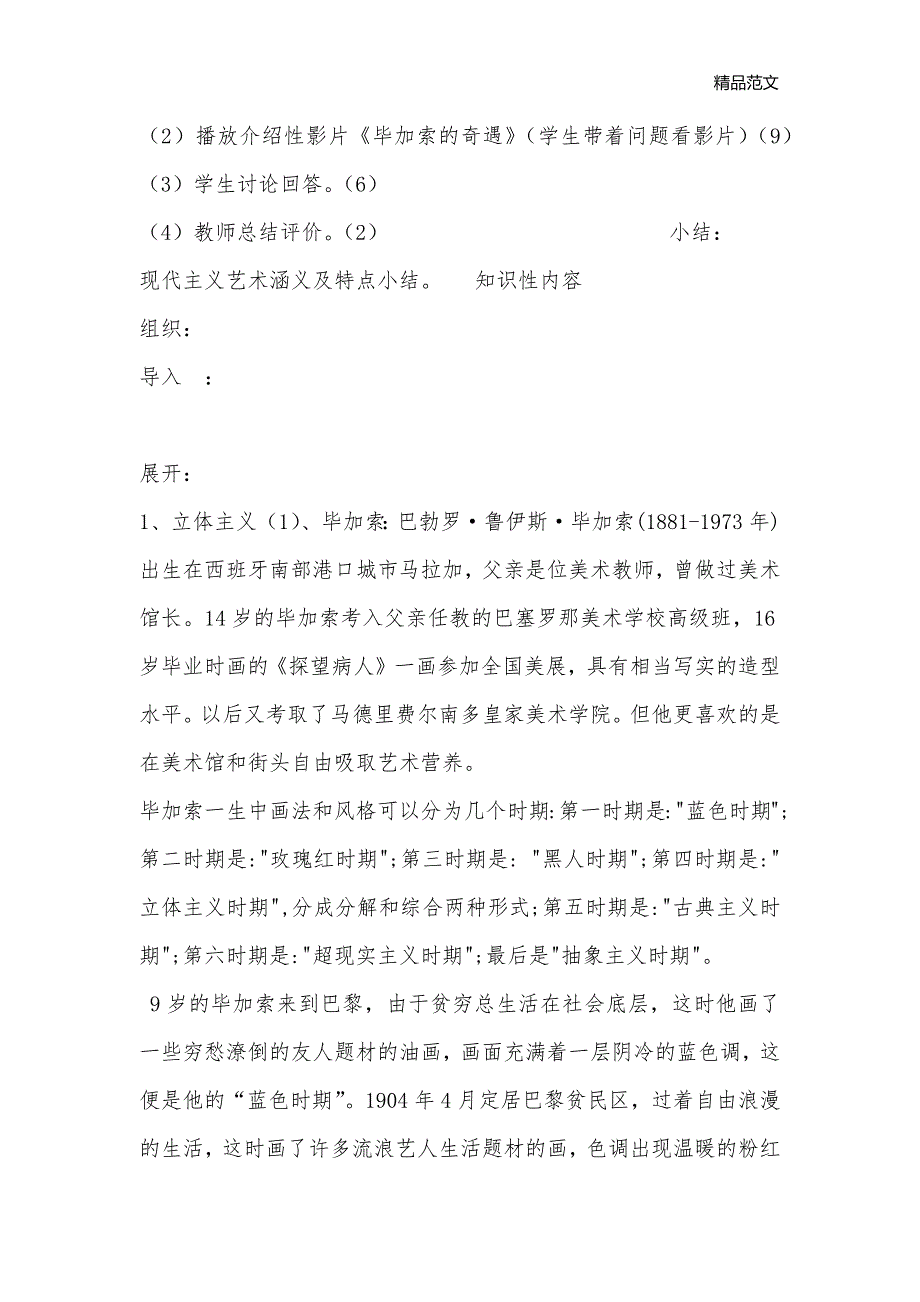 精品范文
（2）播放介绍性影片《毕加索的奇遇》（学生带着问题看影片）（9）
（3）学生讨论回答。（6）
（4）教师总结评价。（2） 小结：
现代主义艺术涵义及特点小结。 知识性内容
组织：
导入 ：
展开：
1、立体主义（1）、毕加索：巴勃罗·鲁伊斯·毕加索(1881-1973年)
出生在西班牙南部港口城市马拉加，父亲是位美术教师，曾做过美术
馆长。14岁的毕加索考入父亲任教的巴塞罗那美术学校高级班，16
岁毕业时画的《探望病人》一画参加全国美展，具有相当写实的造型
水平。以后又考取了马德里费尔南多皇家美术学院。但他更喜欢的是
在美术馆和街头自由吸取艺术营养。
毕加索一生中画法和风格可以分为几个时期：第一时期是："蓝色时期"；
第二时期是："玫瑰红时期"；第三时期是： "黑人时期"；第四时期是："
立体主义时期",分成分解和综合两种形式；第五时期是："古典主义时
期"；第六时期是："超现实主义时期"；最后是"抽象主义时期"。
9岁的毕加索来到巴黎，由于贫穷总生活在社会底层，这时他画了
一些穷愁潦倒的友人题材的油画，画面充满着一层阴冷的蓝色调，这
便是他的“蓝色时期”。1904年4月定居巴黎贫民区，过着自由浪漫
的生活，这时画了许多流浪艺人生活题材的画，色调出现温暖的粉红